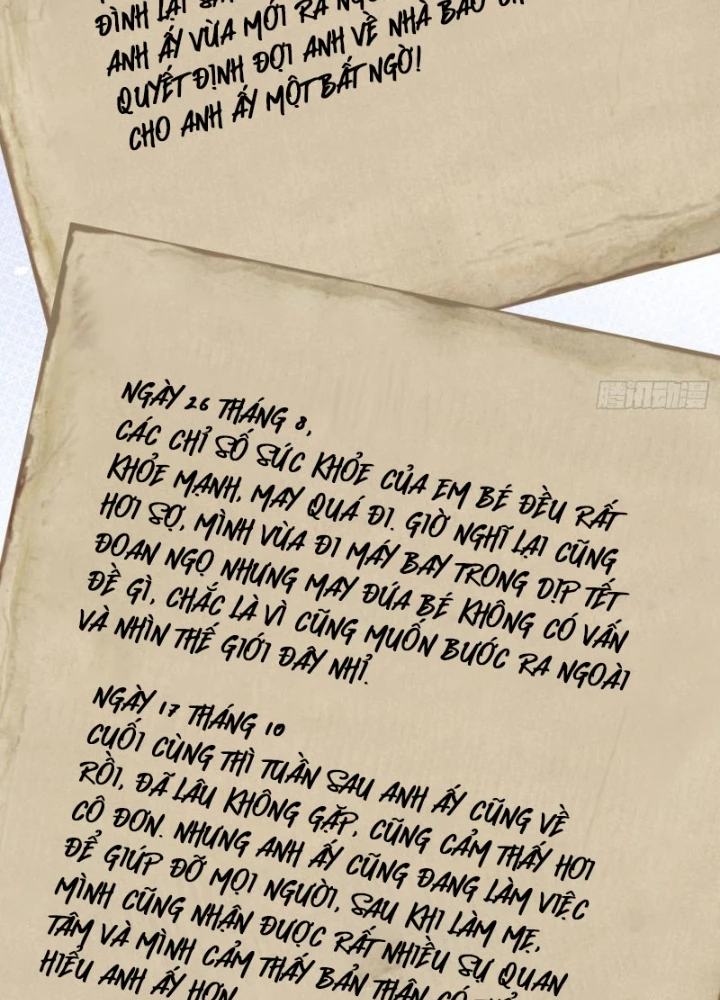 ĐÌNH LẠI
ANH ẤY VỪA MỚI RA
QUYẾT ĐỊNH ĐỢI ANH VỀ NHÀ BÁO
CHO ANH ẤY MỘT BẤT NGỜ!
腾讯动漫
NGÀY 26 THÁNG 8,
CÁC CHỈ SỐ SỨC KHỎE CỦA EM BÉ ĐỀU RẤT
KHỎE MẠNH, MAY QUÁ ĐI. GIỜ NGHĨ LẠI CŨNG
HƠI SỢ, MÌNH VỪA ĐI MÁY BAY TRONG DỊP TẾT
ĐOAN NGỌ NHƯNG MAY ĐỨA BÉ KHÔNG CÓ VẤN
ĐỀ GÌ, CHẮC LÀ VÌ CŨNG MUỐN BƯỚC RA NGOÀI
VÀ NHÌN THẾ GIỚI ĐÂY NHỈ.
NGÀY 17 THÁNG 10
CUỐI CÙNG THÌ TUẦN SAU ANH ẤY CŨNG VỀ
RỒI, ĐÃ LÂU KHÔNG GẶP, CŨNG CẢM THẤY HƠI
CÔ ĐƠN. NHƯNG ANH ẤY CŨNG ĐANG LÀM VIỆC
ĐỂ GIÚP ĐỠ MỌI NGƯỜI, SAU KHI LÀM MẸ,
MÌNH CŨNG NHẬN ĐƯỢC RẤT NHIỀU SỰ QUAN
TÂM VÀ MÌNH CẢM THẤY BẢN THÂN CÓ
HIỂU ANH ẤY HƠN